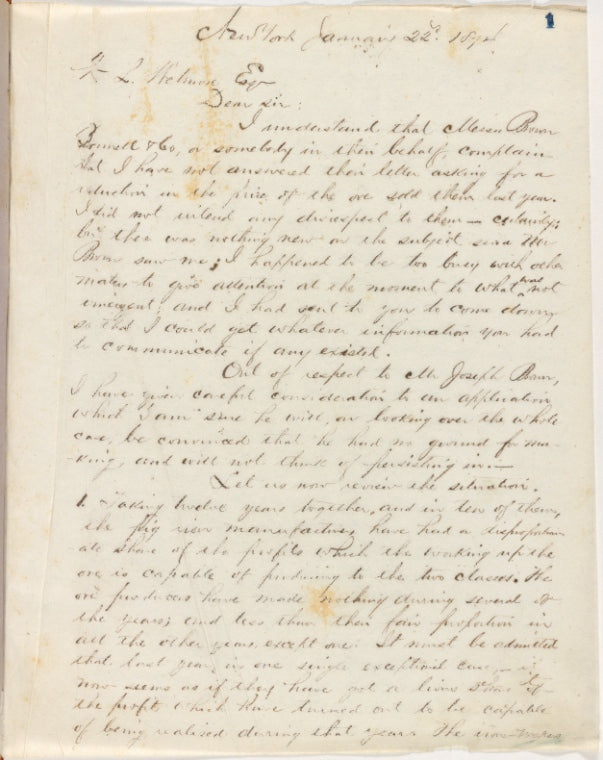 1
New York January 22d. 1874
W L Wetmore Esqr
Dear Sir:
I understand that Messrs Brown
Bonnell & Co, or somebody in their behalf, complain
that I have not answered their letter asking for a
reduction in the price of the ore sold them last year.
I did not intend any disrespect to them — certainly;
but there was nothing new on the subject since Mr
Brown saw me; I happened to be too busy with other
matters to give attention at the moment to what was not
urgent; and I had sent to you to come down
so that I could get whatever information you had
to communicate if any existed.
Out of respect to Mr Joseph Brown,
I have given careful consideration to an application
which I am sure he will, on looking over the whole
case, be convinced that he had no ground for ma-
-king, and will not think of persisting in.—
Let us now review the situation.
1. Taking twelve years together, and in ten of them,
the pig iron manufacturers have had a disproportion-
-ate share of the profits which the working up the
ore is capable of producing to the two classes. The
ore producers have made nothing during several of
the years; and less than their fair proportion in
all the other years, except one. It must be admitted
that last year is one single exceptional case, — it
now seems as if they have got a lions share of
the profits which have turned out to be capable
of being realised during that year. The iron-makers